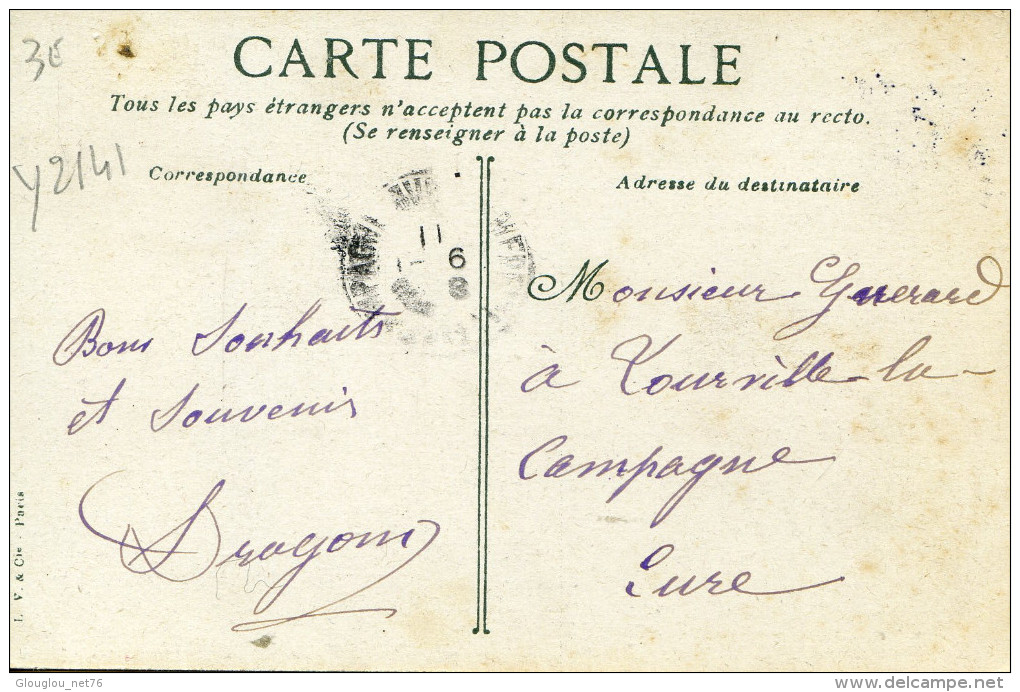 3€
CARTE POSTALE
Tous les pays étrangers n'acceptent pas la correspondance au recto.
(Se renseigner à la poste)
Y2141
Correspondance
Adresse du destinataire
11
6
Bons Souhaits
et Souvenir
Dragom
Monsieur Guerard
à Tourville-la-
Campagne
Eure
L. V. & Cie - Paris
Glouglou_net76
www.delcampe.net